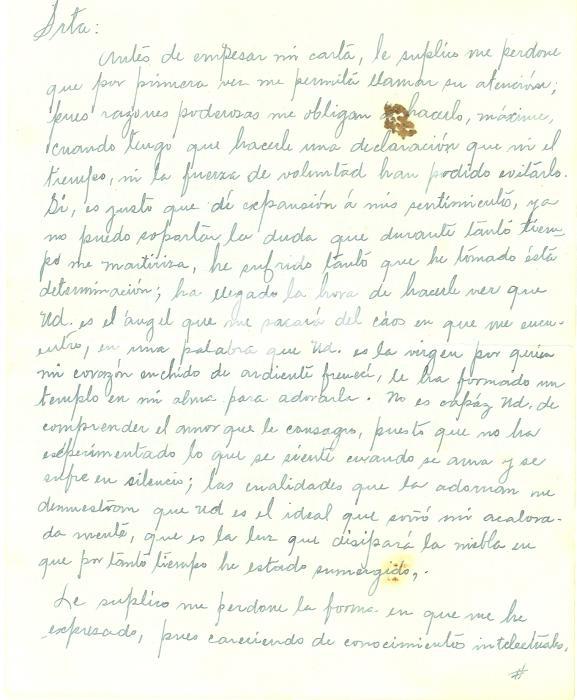 Srta:
Antes de empesar mi carta, le suplico me perdone
que por primera vez me permita llamar su atención;
pues razones poderosas me obligan a hacerlo, máxime,
cuando tengo que hacerle una declaración que ni el
tiempo, ni la fuerza de voluntad han podido evitarlo.
Si, es justo que dé expansión á mis sentimientos, ya
no puedo soportar la duda que durante tanto tiem-
po me martiriza, he sufrido tanto que he tomado ésta
determinación; ha llegado la hora de hacerle ver que
Ud. es el ángel que me sacará del cáos en que me encu-
entro, en una palabra que Ud. es la virgen por quien
mi corazón enchido de ardiente frenecí, le ha formado un
templo en mi alma para adorarla. No es capáz Ud. de
comprender el amor que le consagro, puesto que no ha
experimentado lo que se siente cuando se ama y se
sufre en silencio; las cualidades que la adornan me
demuestran que Ud es el ideal que soñó mi acalora-
da mente, que es la luz que disipará la niebla en
que por tanto tiempo he estado sumergido,.
Le suplico me perdone la forma en que me he
expresado, pues careciendo de conocimientos intelectuales,
#